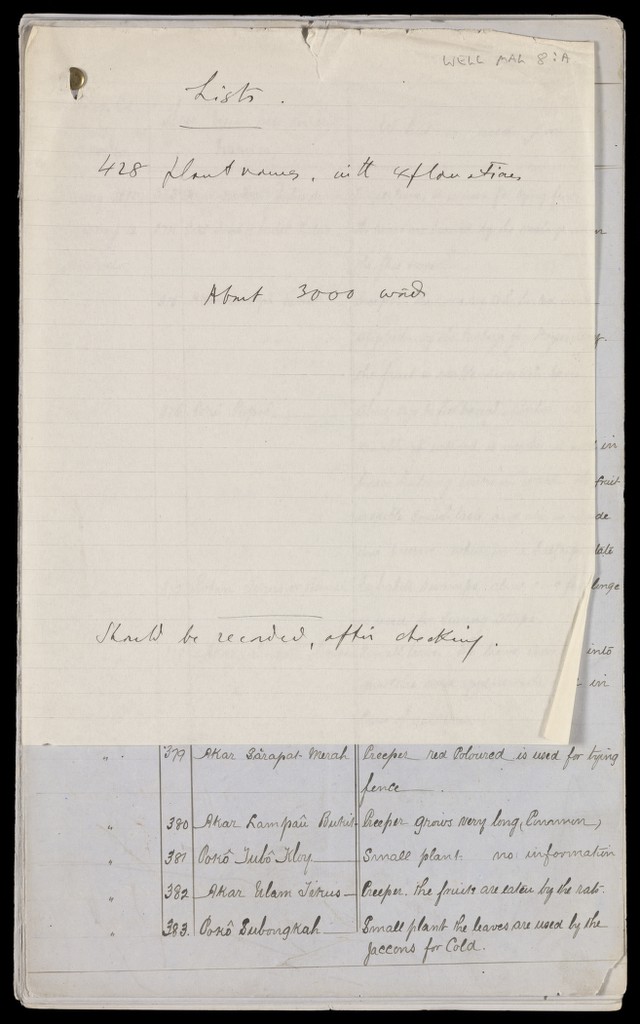 WELL MAL 8:A
Lists.
428 plant names, with explanations
About 3000 words
Should be recorded, after checking.
in
fruit
de
late
into
in
" 379 Akar Sàrapat Merah Creeper red Coloured is used for tying
fence
" 380 Akar Lampaû Bukit Creeper grows very long, Cinnamon,
" 381 Pokô Jubô Kloy Small plant no information
" 382 Akar Ulam Tikus Creeper. the fruits are eaten by the rats.
" 383. Pokô Subongkah Small plant the leaves are used by the
Jaccons for Cold.